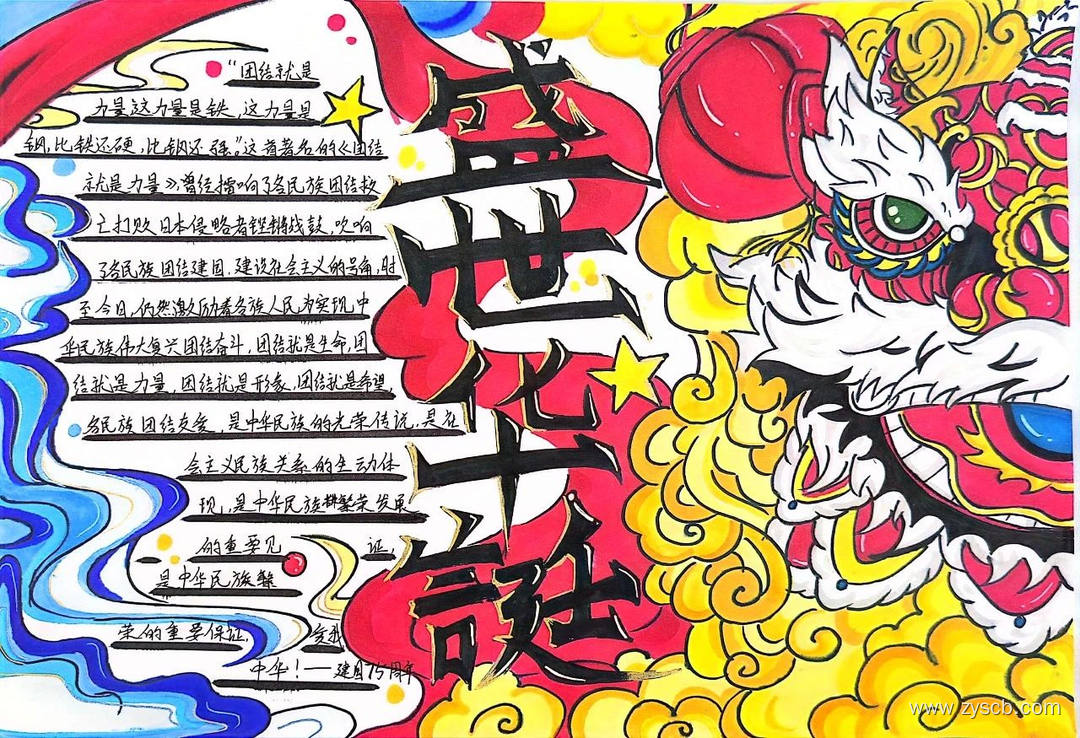 盛世华诞
"团结就是
力量这力量是铁,这力量是
钢,比铁还硬,比钢还强。"这首著名的《团结
就是力量》,曾经擂响了各民族团结救
亡打败日本侵略者铿锵战鼓,吹响
了各民族团结建国,建设社会主义的号角,时
至今日,仍然激励着各族人民为实现中
华民族伟大复兴团结奋斗,团结就是生命,团
结就是力量,团结就是形象,团结就是希望,
各民族团结友爱,是中华民族的光荣传说,是社
会主义民族关系的生动体
现,是中华民族繁荣发展
的重要见证,
是中华民族繁
荣的重要保证,爱我
中华!——建国75周年
www.zyscb.com